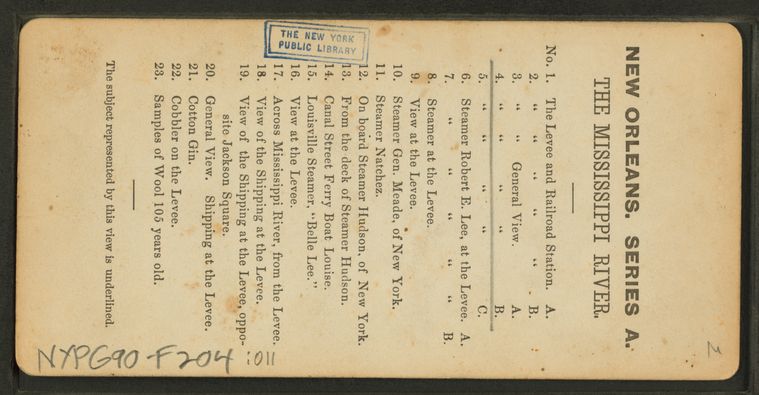 NEW ORLEANS. SERIES A.
THE MISSISSIPPI RIVER.
No. 1. The Levee and Railroad Station. A.
2. " " " " " B.
3. " " General View. A.
4. " " " " B.
5. " " " " C.
6. Steamer Robert E. Lee, at the Levee. A.
7. " " " " " B.
8. Steamer at the Levee.
9. View at the Levee.
10. Steamer Gen. Meade, of New York.
11. Steamer Natchez.
12. On board Steamer Hudson, of New York.
13. From the deck of Steamer Hudson.
14. Canal Street Ferry Boat Louise.
15. Louisville Steamer, "Belle Lee."
16. View at the Levee.
17. Across Mississippi River, from the Levee.
18. View of the Shipping at the Levee.
19. View of the Shipping at the Levee, oppo-
site Jackson Square.
20. General View. Shipping at the Levee.
21. Cotton Gin.
22. Cobbler on the Levee.
23. Samples of Wool 105 years old.
The subject represented by this view is underlined.
THE NEW YORK
PUBLIC LIBRARY
NYPG90-F204 :011